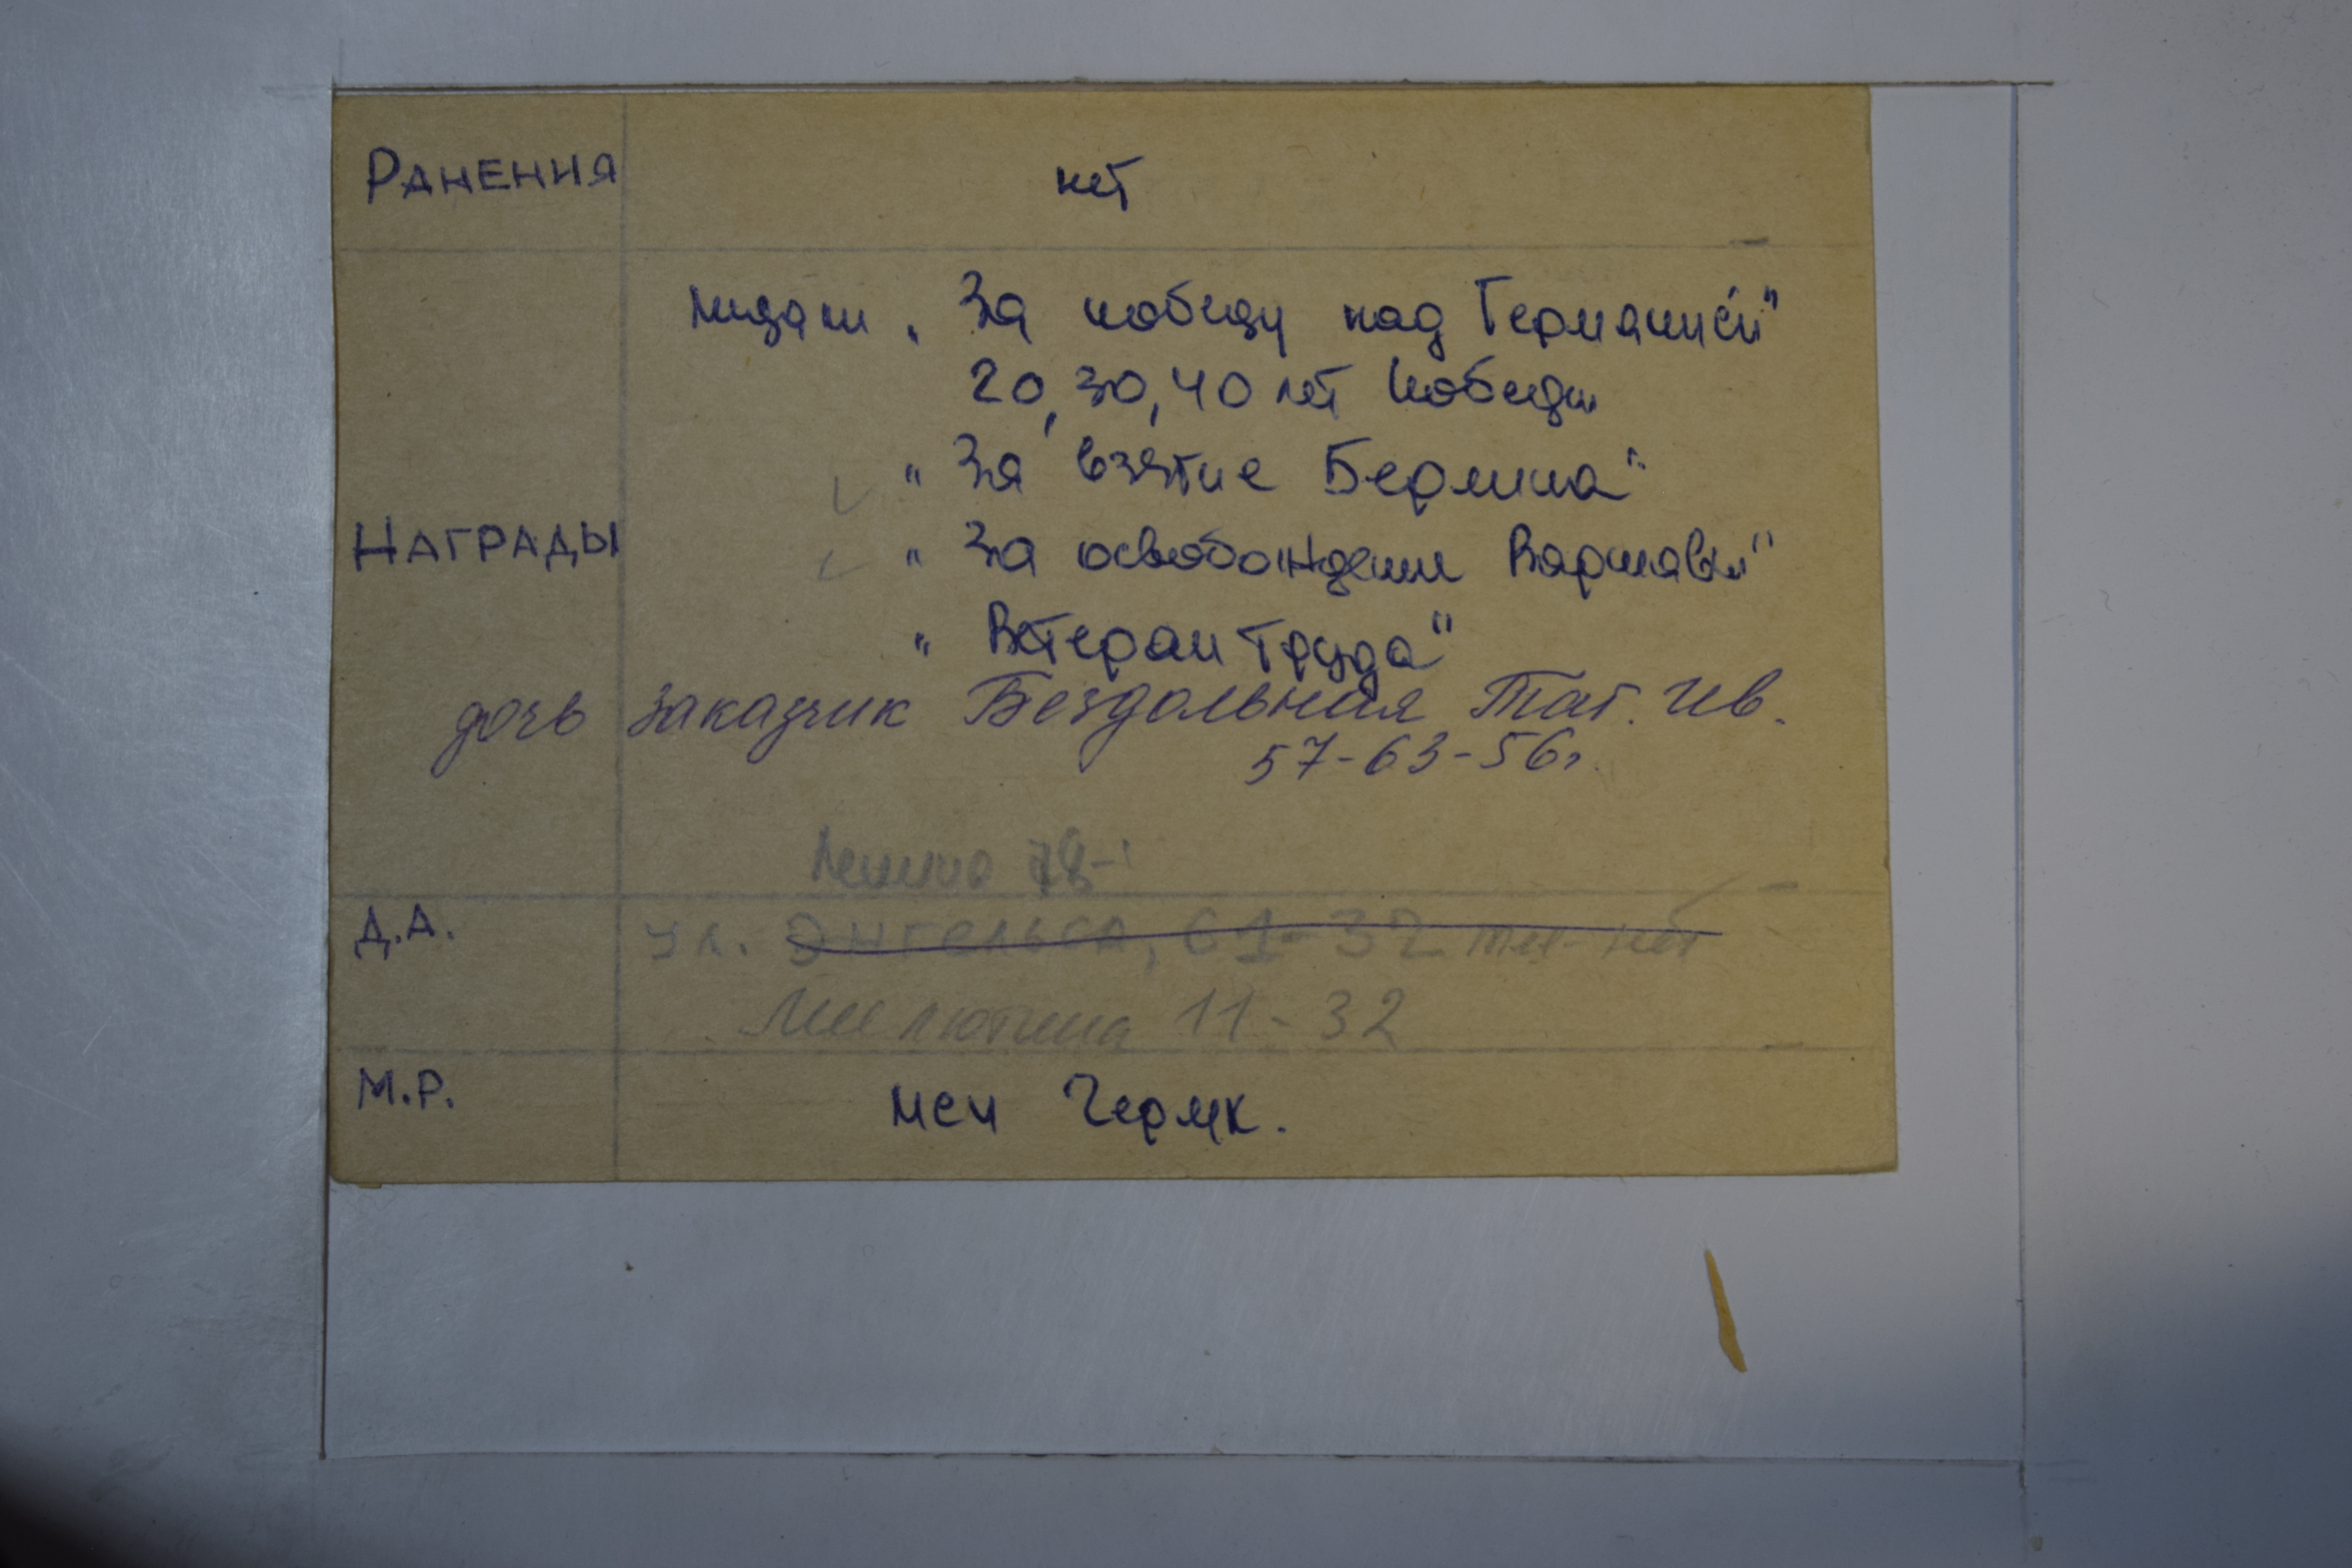 РАНЕНИЯ нет
медали „За победу над Германией"
20, 30, 40 лет Победы
"За взятие Берлина"
НАГРАДЫ "За освобождение Варшавы"
"Ветеран Труда"
дочь заказчик Бездольная Тат. Ив.
57-63-56
Ленина 78-
Д.А. ул. Энгельса, 61-32 тел- нет
Милютина 11-32
М.Р. МСЧ Чермк.